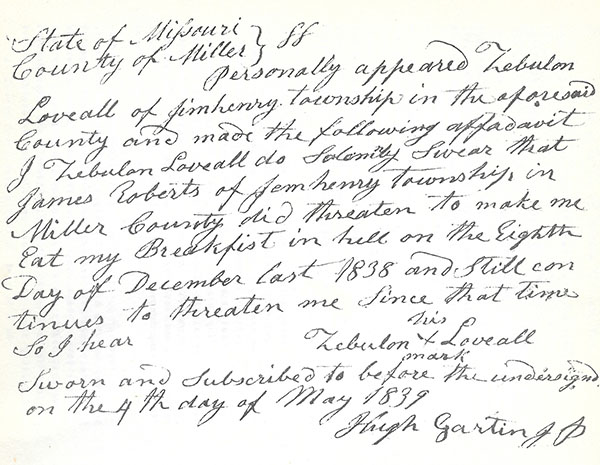 State of Missouri
County of Miller } SS
Personally appeared Zebulon
Loveall of Jimhenry township in the aforesaid
County and made the following affadavit
I Zebulon Loveall do Solemnly Swear that
James Roberts of Jemhenry township in
Miller County did threaten to make me
Eat my Breakfist in hell on the Eighth
Day of December last 1838 and Still con
tinues to threaten me Since that time
So I hear
his
Zebulon x Loveall
mark
Sworn and Subscribed to before the undersignd
on the 4th day of May 1839
Hugh Gartin J P